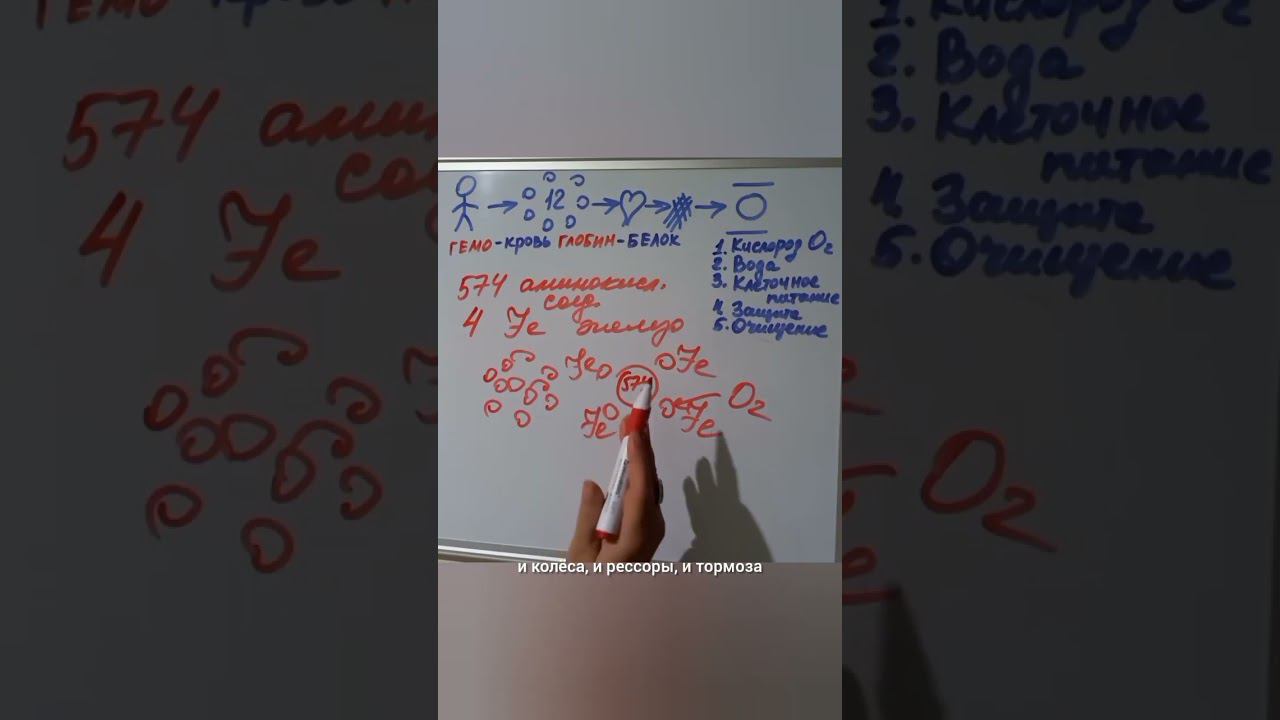 12
ГЕМО-КРОВЬ ГЛОБИН-БЕЛОК
1. Кислород O₂
2. Вода
3. Клеточное
питание
4. Защита
5. Очищение
574 аминокисл.
соед.
4 Fe железо
Fe
Fe
574
Fe
Fe
O₂
и колёса, и рессоры, и тормоза